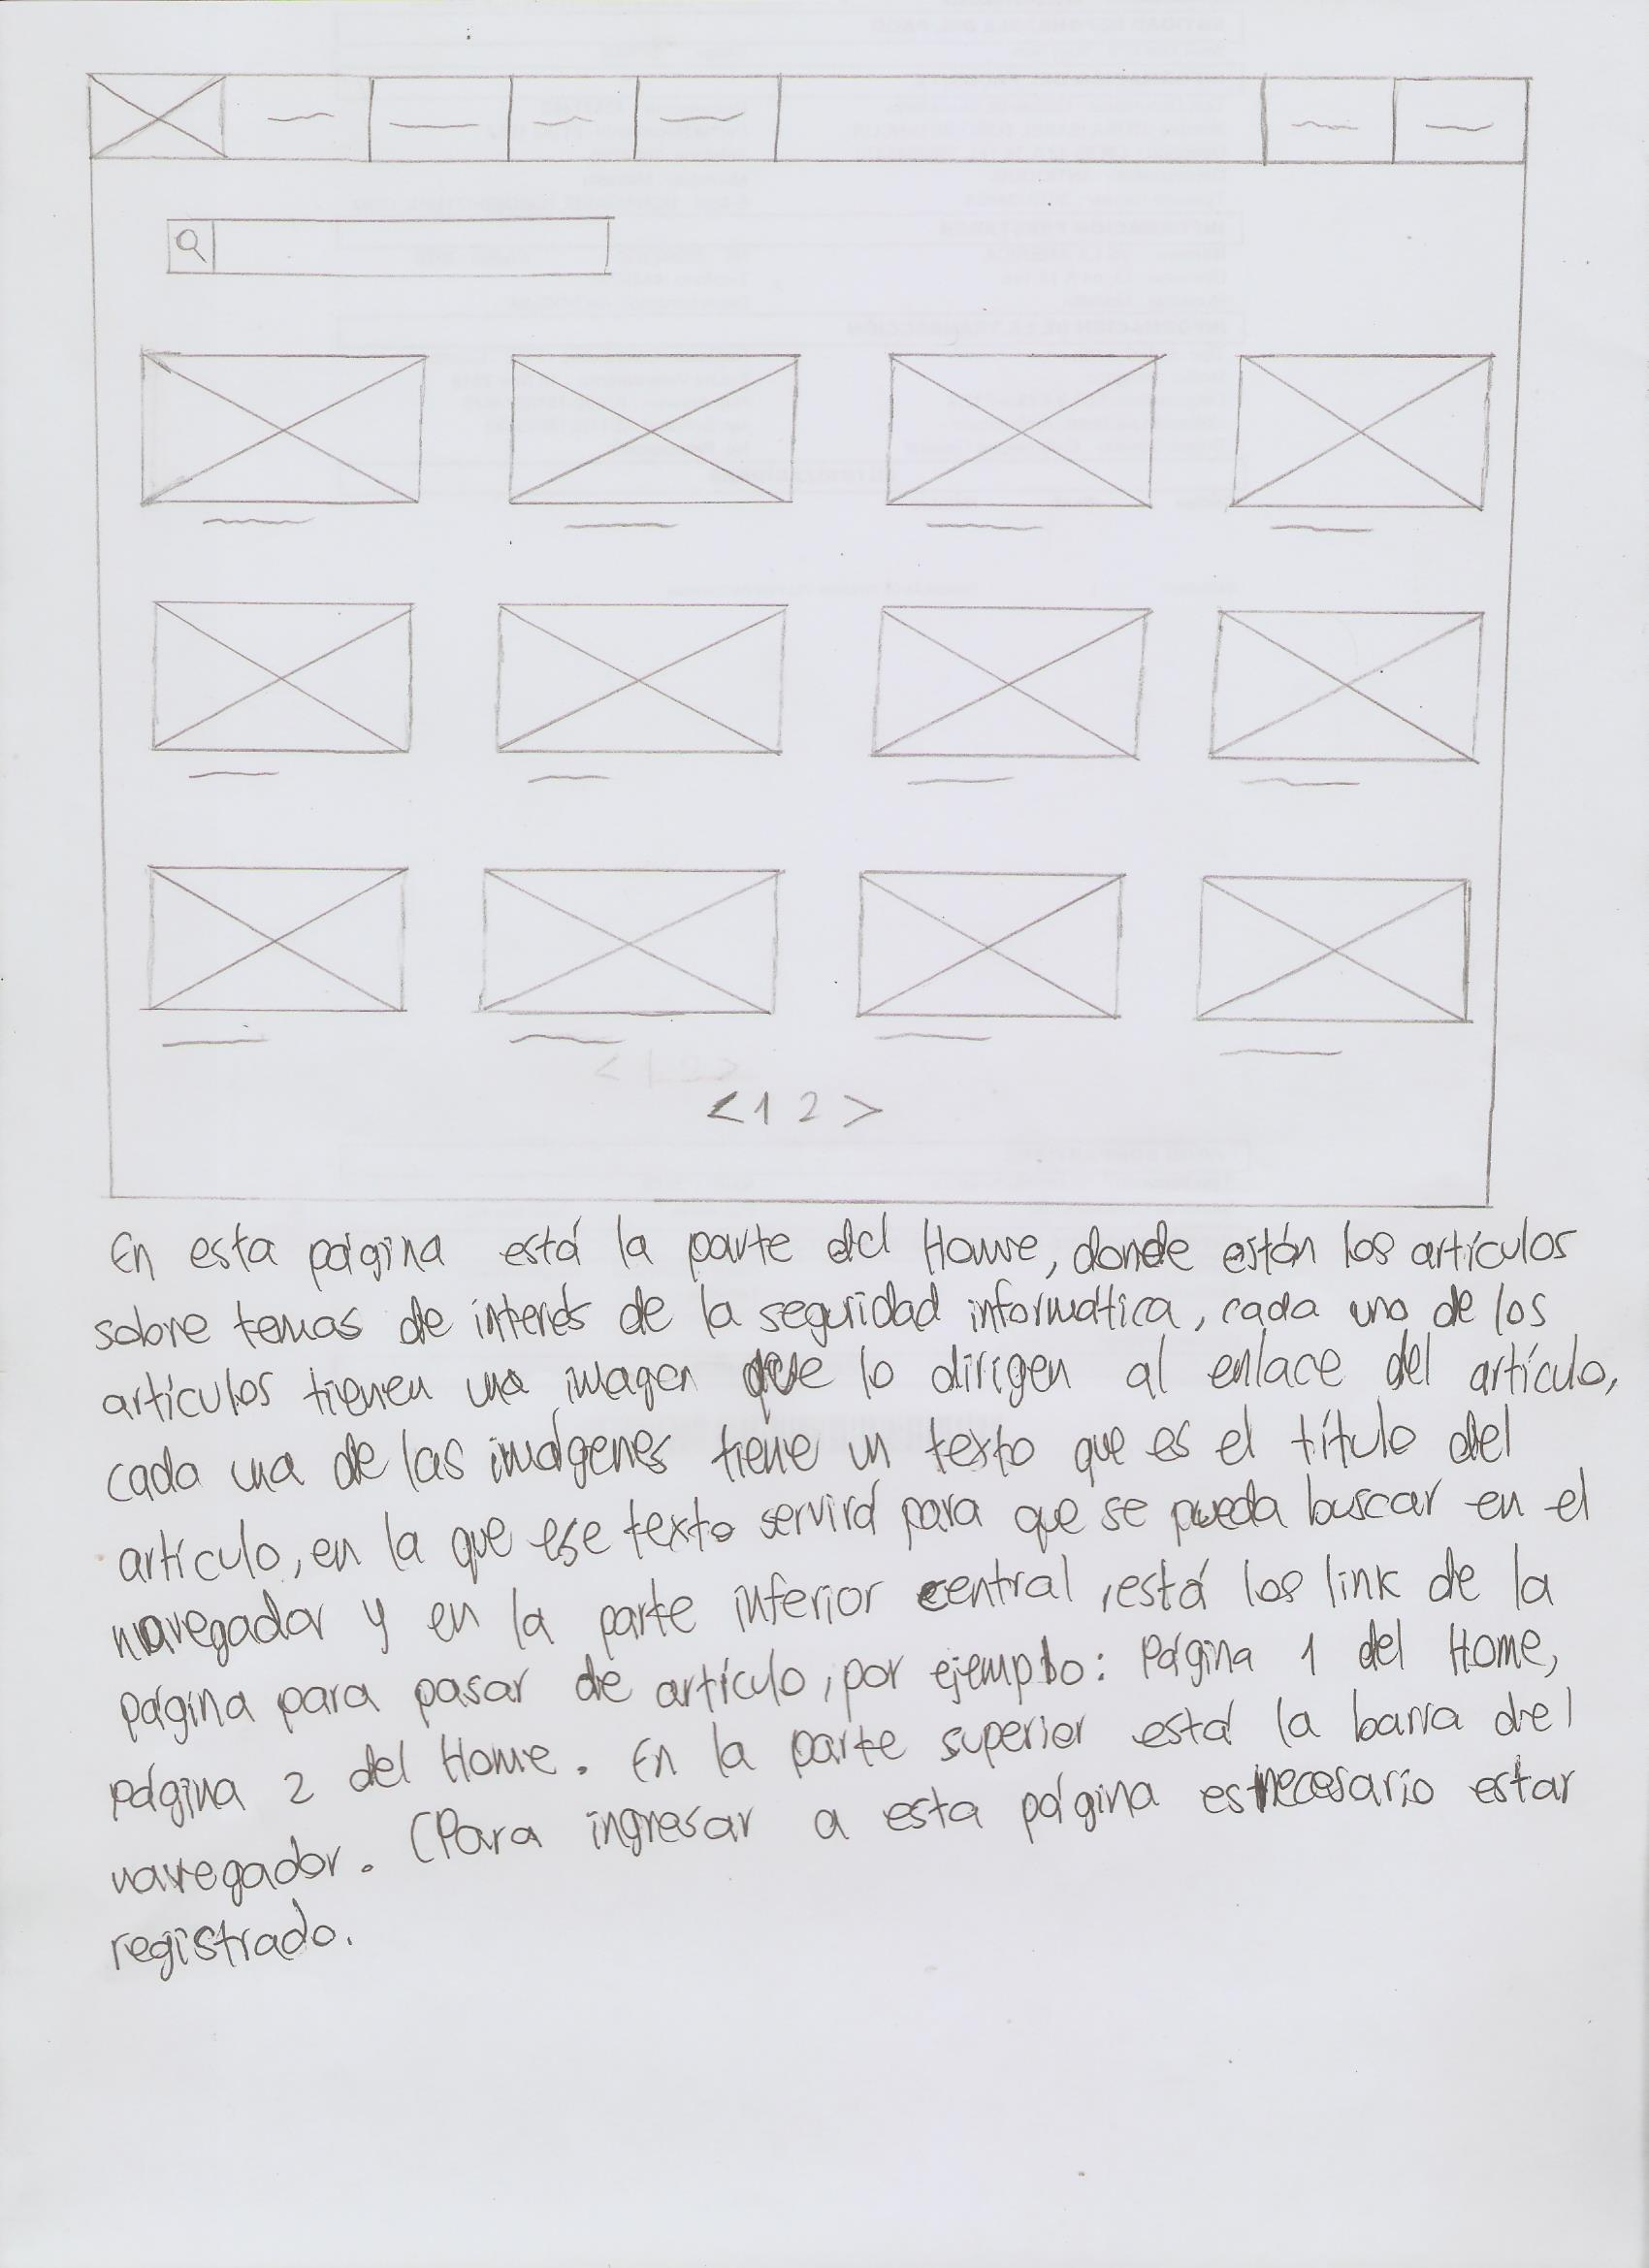 < 1 2 >
En esta página está la parte del Home, donde están los artículos
sobre temas de interés de la seguridad informática, cada uno de los
artículos tienen una imagen que lo dirigen al enlace del artículo,
cada una de las imágenes tiene un texto que es el título del
artículo, en la que ese texto servirá para que se pueda buscar en el
navegador y en la parte inferior central, está los link de la
página para pasar de artículo, por ejemplo: Página 1 del Home,
página 2 del Home. En la parte superior está la barra del
navegador. (Para ingresar a esta página es necesario estar
registrado.